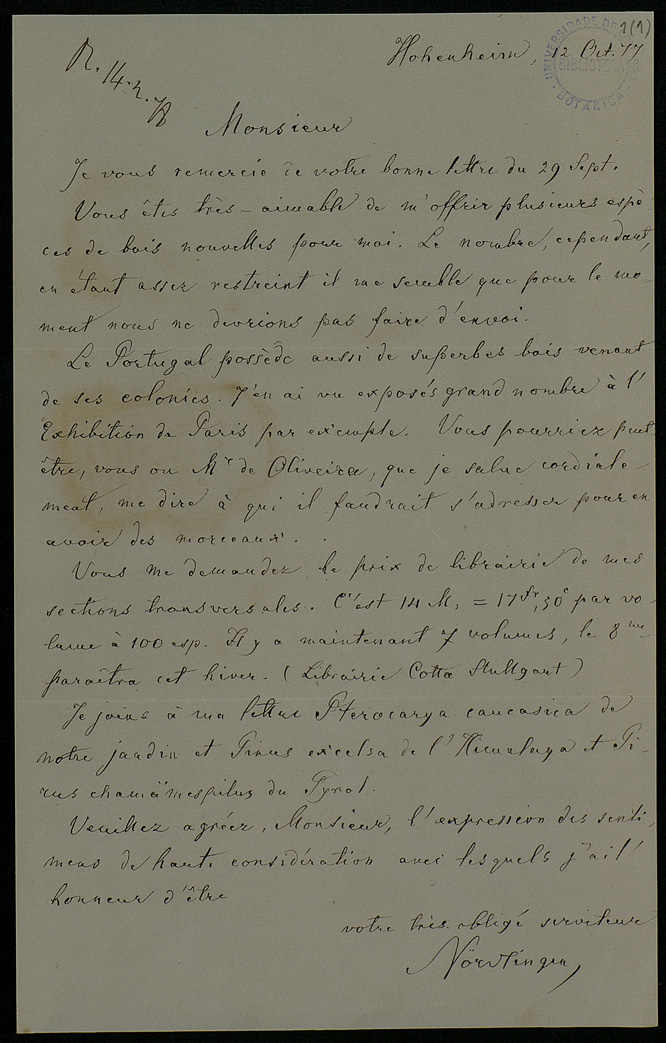 1(1)
R. 14.2.78
Hohenheim, 12 Oct. 77
UNIVERSIDADE DE
BIBLIOTECA
BOTANICA
Monsieur
Je vous remercie de votre bonne lettre du 29 Sept.
Vous êtes très-aimable de m'offrir plusieurs espè-
ces de bois nouvelles pour moi. Le nombre, cependant,
en étant assez restreint il me semble que pour le mo-
ment nous ne devrions pas faire d'envoi.
Le Portugal possède aussi de superbes bois venant
de ses colonies. J'en ai vu exposés grand nombre à l'
Exhibition de Paris par exemple. Vous pourriez peut
être, vous ou Mr de Oliveira, que je salue cordiale-
ment, me dire à qui il faudrait s'adresser pour en
avoir des morceaux.
Vous me demandez le prix de librairie de mes
sections transversales. C'est 14 M. = 17 fr, 50 c par vo-
lume à 100 esp. Il y a maintenant 7 volumes, le 8me
paraîtra cet hiver. (Librairie Cotta Stuttgart)
Je joins à ma lettre Pterocarya caucasica de
notre jardin et Pinus excelsa de l'Himalaya et Pi-
rus chamämespilus du Tyrol.
Veuillez agréer, Monsieur, l'expression des senti-
mens de haute considération avec lesquels j'ai l'
honneur d'être
votre très obligé serviteur
Nördlinger